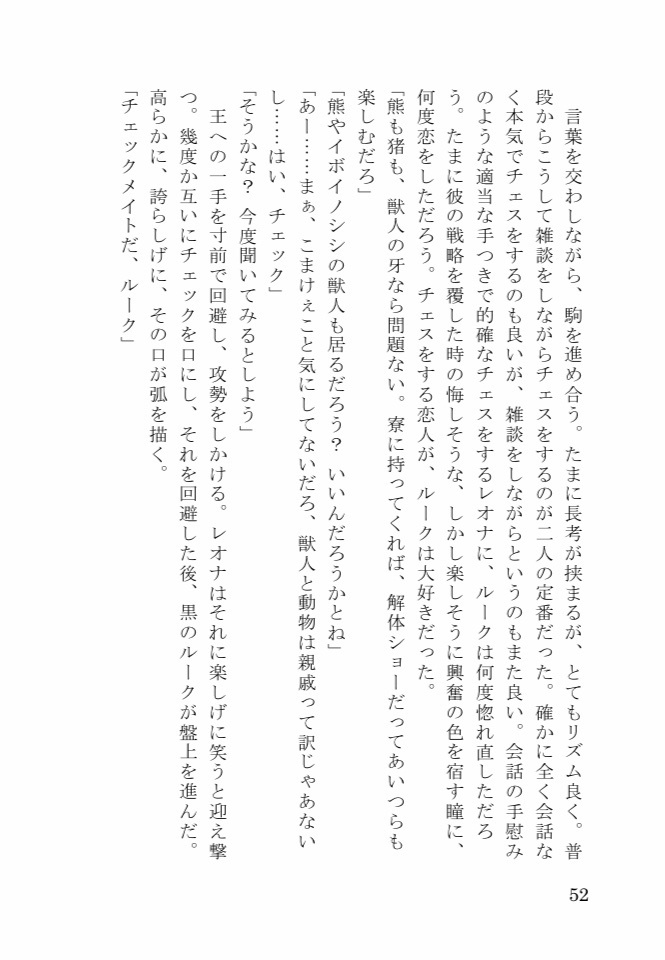 言葉を交わしながら、駒を進め合う。たまに長考が挟まるが、とてもリズム良く。普
段からこうして雑談をしながらチェスをするのが二人の定番だった。確かに全く会話な
く本気でチェスをするのも良いが、雑談をしながらというのもまた良い。会話の手慰み
のような適当な手つきで的確なチェスをするレオナに、ルークは何度惚れ直しただろ
う。たまに彼の戦略を覆した時の悔しそうな、しかし楽しそうに興奮の色を宿す瞳に、
何度恋をしただろう。チェスをする恋人が、ルークは大好きだった。
「熊も猪も、獣人の牙なら問題ない。寮に持ってくれば、解体ショーだってあいつらも
楽しむだろ」
「熊やイボイノシシの獣人も居るだろう？ いいんだろうかとね」
「あー……まぁ、こまけぇこと気にしてないだろ、獣人と動物は親戚って訳じゃあない
し……はい、チェック」
「そうかな？ 今度聞いてみるとしよう」
　王への一手を寸前で回避し、攻勢をしかける。レオナはそれに楽しげに笑うと迎え撃
つ。幾度か互いにチェックを口にし、それを回避した後、黒のルークが盤上を進んだ。
高らかに、誇らしげに、その口が弧を描く。
「チェックメイトだ、ルーク」
52